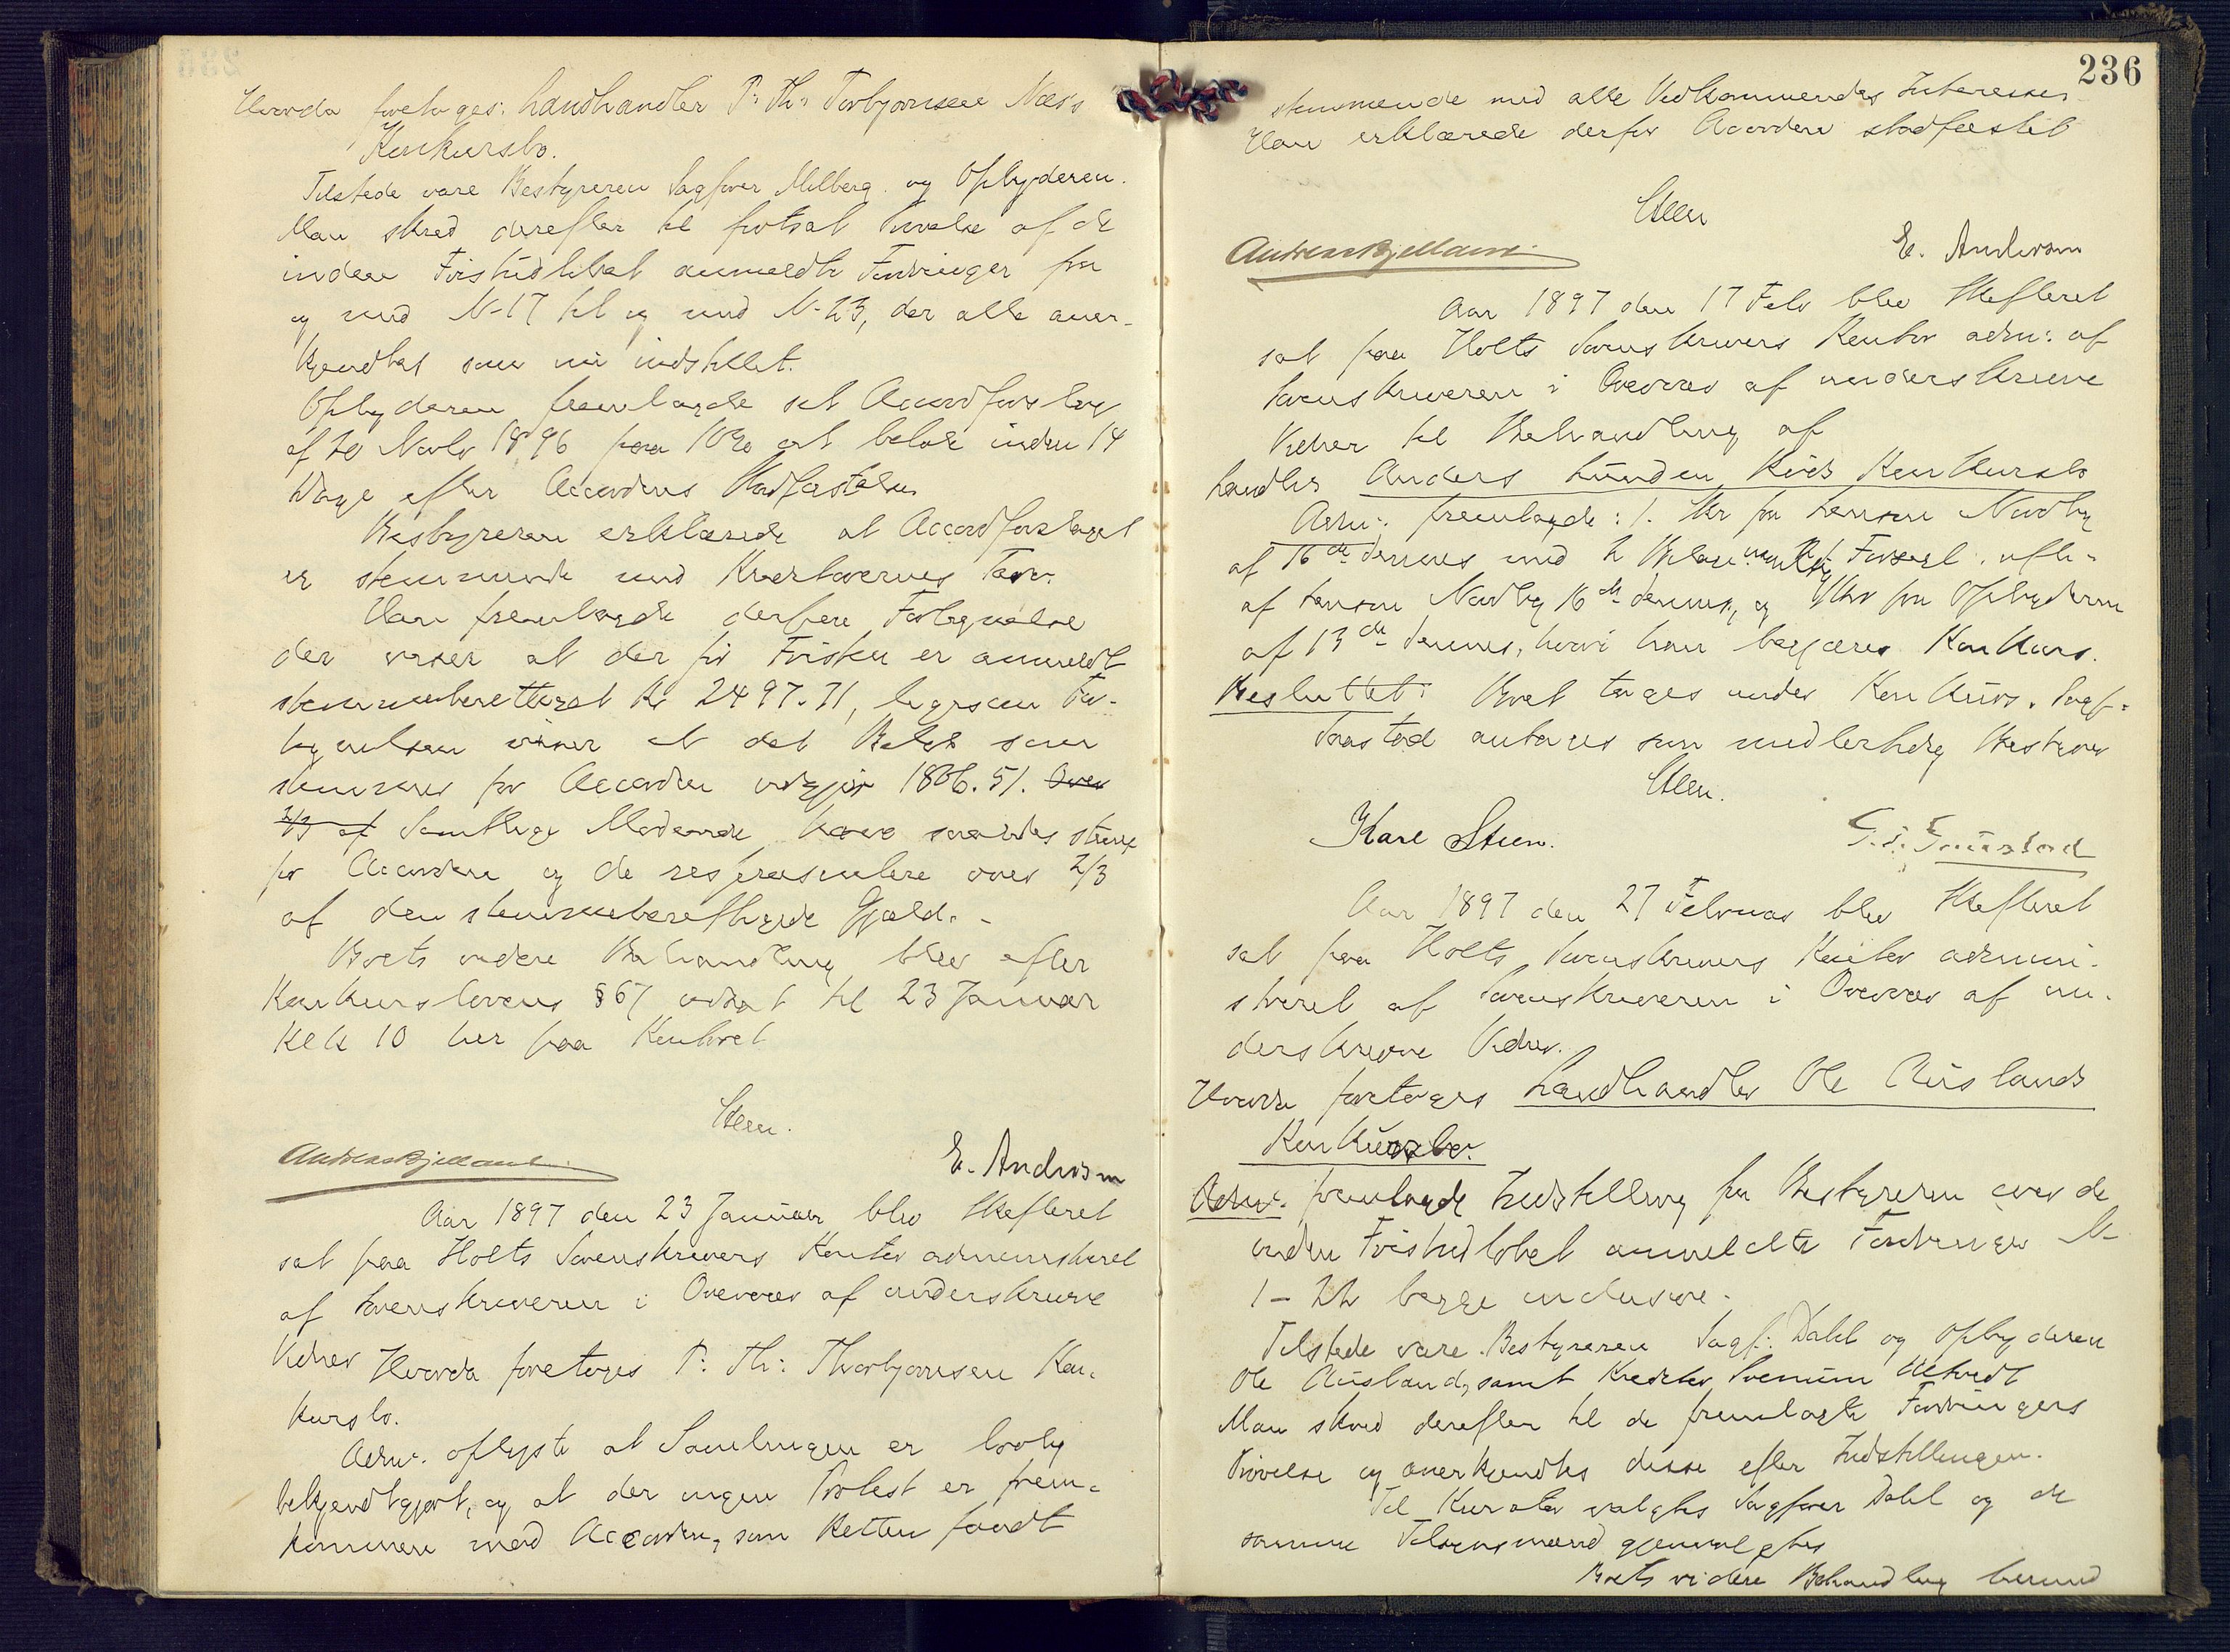 Hvorda foretoges: Landhandler P. Th. Torbjørnsen Næs's
Konkursbo.
Tilstede vare Bestyreren Sagfører Milberg og Opbyderen.
Man skred derefter til fortsat Prøvelse af de
inden Fristudløbet anmeldte Fordringer fra
og med N-17 til og med N-23, der alle aner-
kjendtes som nu indstillet.
Opbyderen fremlagde sat Accordforslag
af 20 Novbr 1896 paa 10% at betale inden 14
Dage efter Accordens Stadfæstelse
Bestyreren erklærede at Accordforslaget
er stemmende med Kreditorernes Tarv.
Han fremlagde derpaa Fortegnelse
der viser at der før Fristen er anmeldt
stemmeberettiget Kr 2497.71, ligesom For-
tegnelsen viser at det Beløb som
stemmer for Accorden udgjør 1806.51. Over
2/3 af Samtlige Mødende have saaledes stemt
for Accorden og de repræsentere over 2/3
af den stemmeberettigede Gjæld.-
Boets videre Behandling blev efter
Konkurslovens § 67 udsat til 23 Januar
Kl 10 her paa Kontoret
Steen.
Andreas Bjelland. E. Anderson
Aar 1897 den 23 Januar blev Skifteret
sat paa Holts Sorenskrivers Kontor administreret
af Sorenskriveren i Overvær af underskrevne
Vidner Hvorda foretoges P: Th: Thorbjørnsens Kon-
kursbo.
Adm. oplyste at Samlingen er lovlig
bekjendtgjort, og at der ingen Protest er frem-
kommen mod Accorden, som Retten fandt
236
stemmende med alle Vedkommendes Interesser
Han erklærede derfor Accorden stadfæstet
Steen
Andreas Bjelland. E. Anderson
Aar 1897 den 17 Febr blev Skifteret
sat paa Holts Sorenskrivers Kontor adm: af
Sorenskriveren i Overvær af underskrevne
Vidner til Behandling af
Landhdl Anders Lunden Konkursbo
Adm. fremlagde: 1. Skr fra Nordby
af 16de dennes med 2 Bilage
af Nordby 16de dennes, og Skr fra Opbyderen
af 13de dennes, hvori han begjærer Konkurs.
Besluttet: Boet tages under Konkurs. Sagf.
antoges som midlertidig Bestyrer
Steen.
Karl Steen.
Aar 1897 den 27 Februar blev Skifteret
sat paa Holts Sorenskrivers Kontor admini-
streret af Sorenskriveren i Overvær af un-
derskrevne Vidner.
Hvorda foretoges Landhandler Ole Auslands
Konkursbo.
Adm. fremlagde Indstilling fra Bestyreren over de
inden Fristudløbet anmeldte Fordringer N-
1 - 22 begge inclusive.
Tilstede vare Bestyreren Sagf: Dahl og Opbyderen
Ole Ausland, samt Kreditor
Man skred derefter til de fremlagte Fordringers
Prøvelse og anerkjendtes disse efter Indstillingen.
Til Kurator valgtes Sagfører Dahl og de
samme Tilsynsmænd gjenvalgtes
Boets videre Behandling